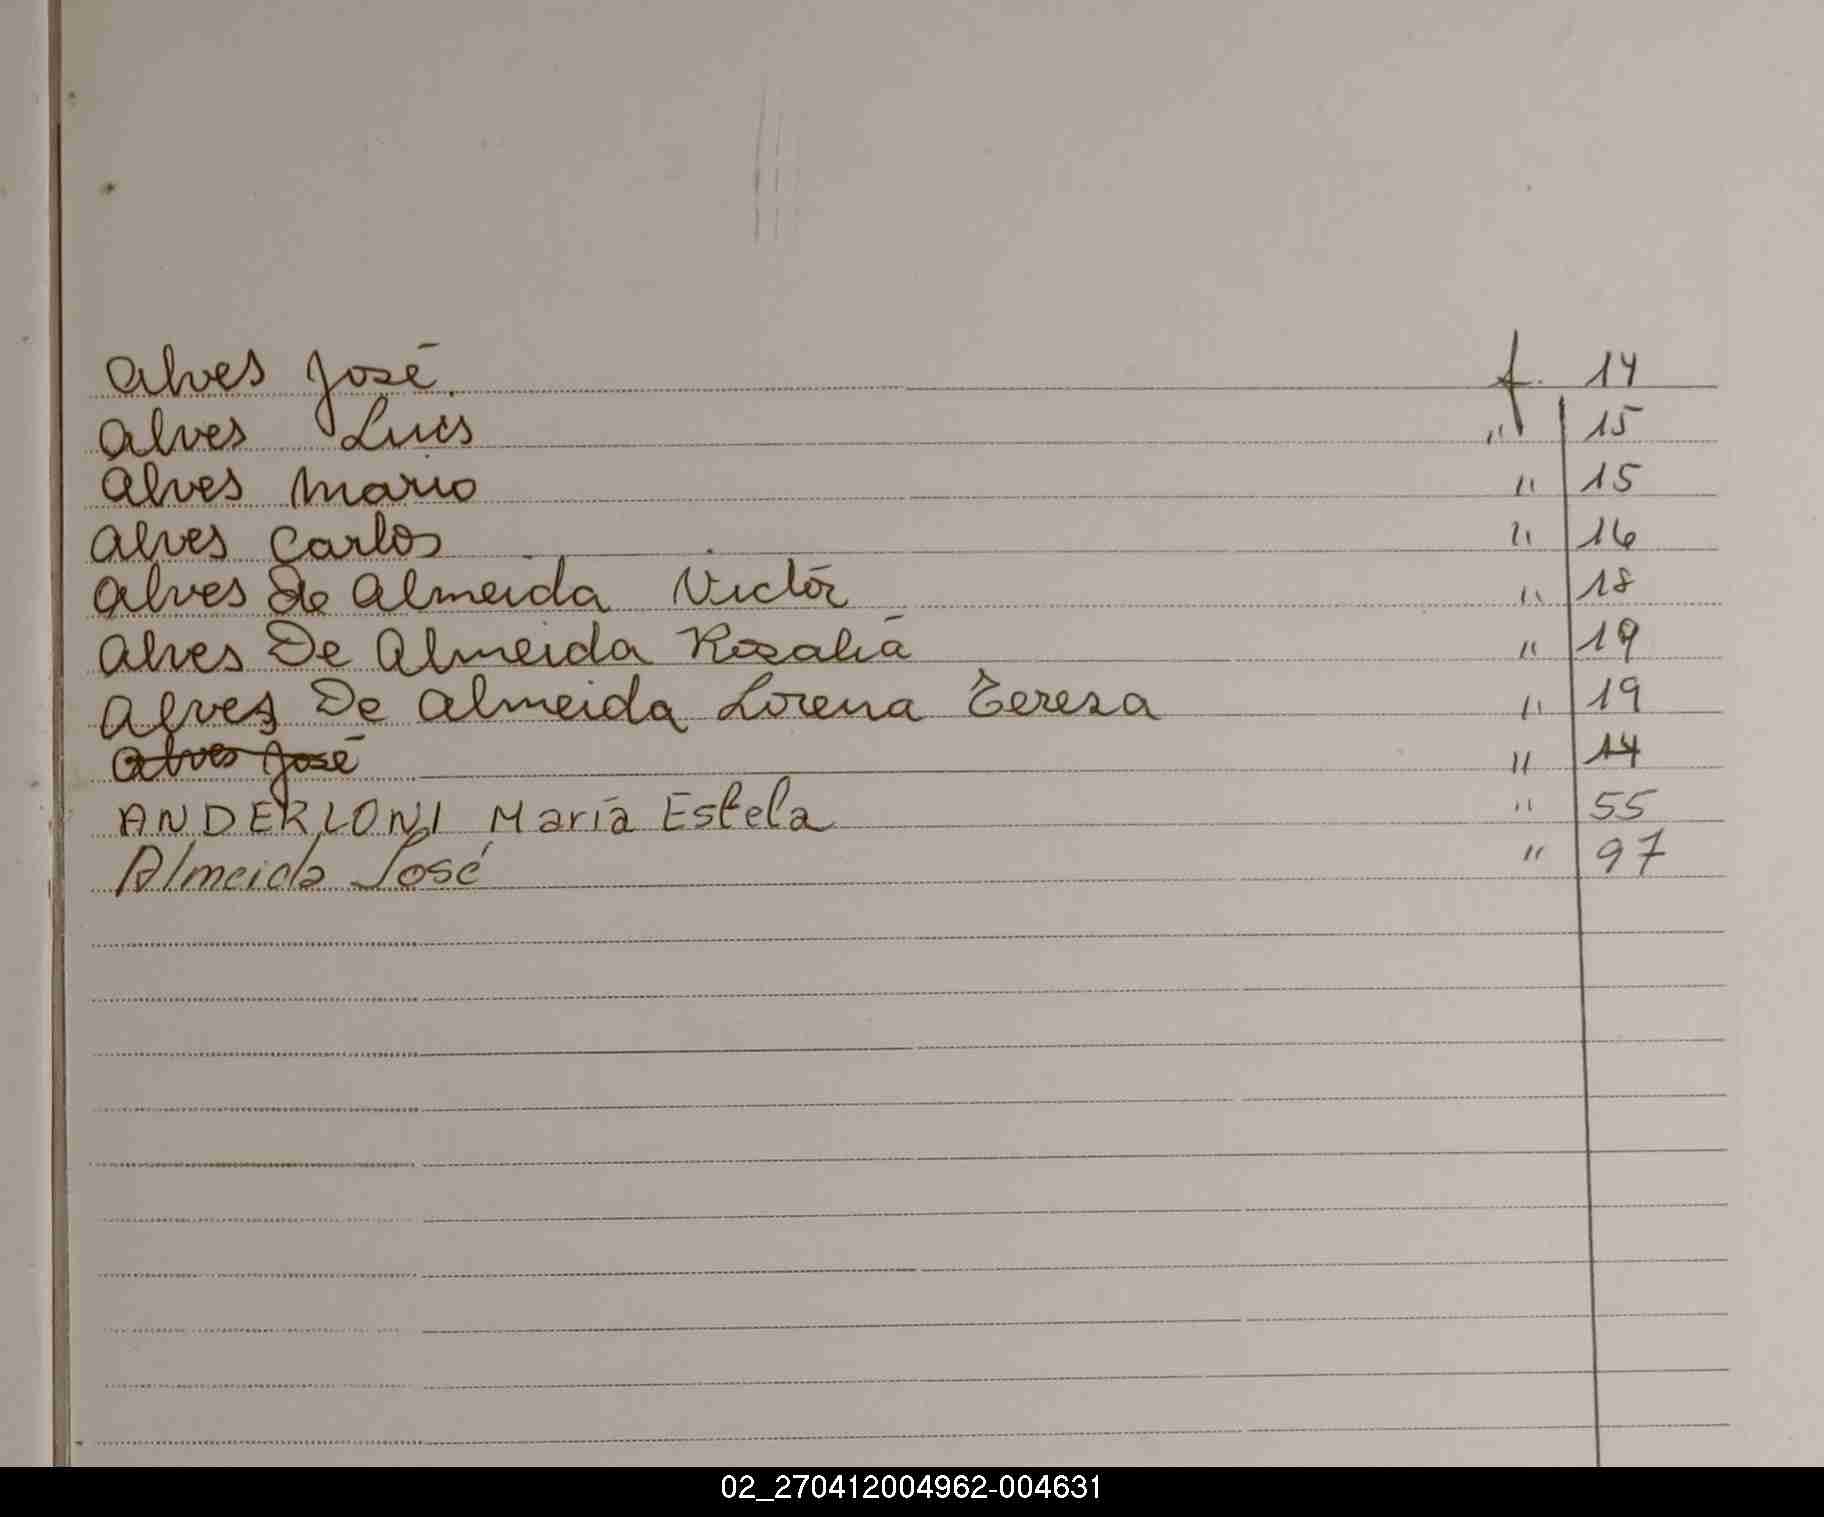 Alves José f. 14
Alves Luis " 15
Alves Mario " 15
Alves Carlos " 16
Alves De Almeida Victór " 18
Alves De Almeida Rosaliá " 19
Alves De Almeida Lorena Teresa " 19
Alves José " 14
ANDERLONI María Estela " 55
Almeida José " 97
02_270412004962-004631